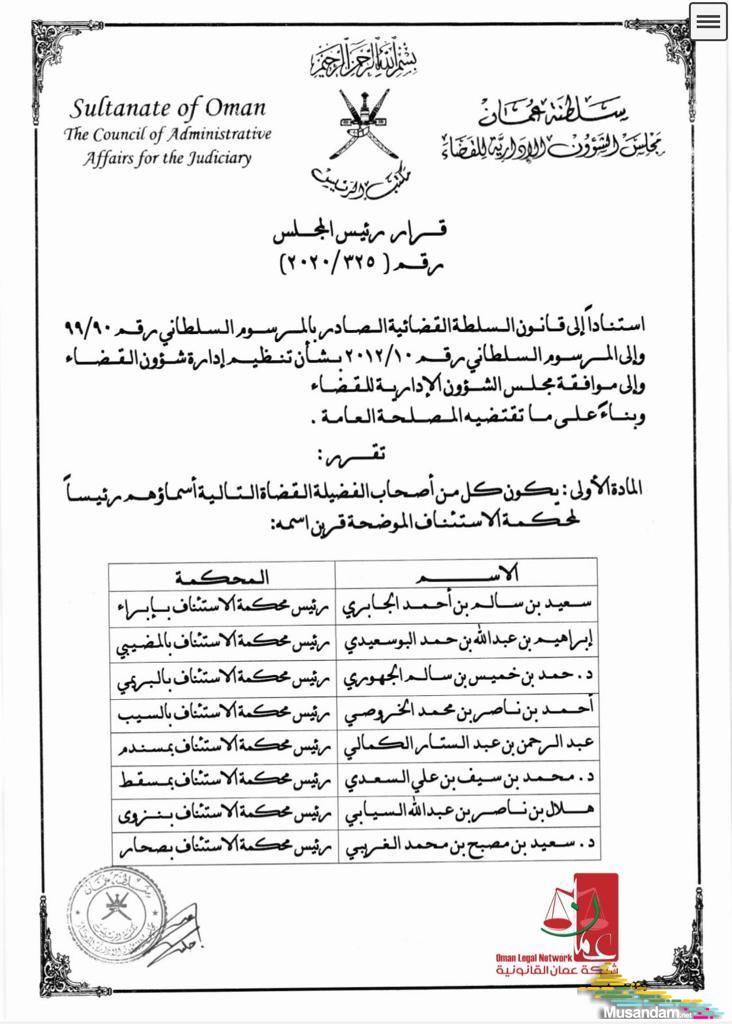 بسم الله الرحمن الرحيم
Sultanate of Oman
The Council of Administrative
Affairs for the Judiciary
سلطنة عمان
مجلس الشؤون الإدارية للقضاء
مكتب الرئيس
قرار رئيس المجلس
رقم ( ٢٠٢٠/٣٢٥)
استناداً إلى قانون السلطة القضائية الصادر بالمرسوم السلطاني رقم ٩٩/٩٠
وإلى المرسوم السلطاني رقم ٢٠١٢/١٠ بشأن تنظيم إدارة شؤون القضاء
وإلى موافقة مجلس الشؤون الإدارية للقضاء
وبناءً على ما تقتضيه المصلحة العامة .
تقرر :
المادة الأولى : يكون كل من أصحاب الفضيلة القضاة التالية أسماؤهم رئيساً
لمحكمة الاستئناف الموضحة قرين اسمه:
الاسم المحكمة
سعيد بن سالم بن أحمد الجابري رئيس محكمة الاستئناف بإبراء
إبراهيم بن عبدالله بن حمد البوسعيدي رئيس محكمة الاستئناف بالمضيبي
د. حمد بن خميس بن سالم الجهوري رئيس محكمة الاستئناف بالبريمي
أحمد بن ناصر بن محمد الخروصي رئيس محكمة الاستئناف بالسيب
عبد الرحمن بن عبد الستار الكمالي رئيس محكمة الاستئناف بمسندم
د. محمد بن سيف بن علي السعدي رئيس محكمة الاستئناف بمسقط
هلال بن ناصر بن عبدالله السيابي رئيس محكمة الاستئناف بنزوى
د. سعيد بن مصبح بن محمد الغريبي رئيس محكمة الاستئناف بصحار
سلطنة عمان
عمان
Oman Legal Network
شبكة عمان القانونية
Musandam.net